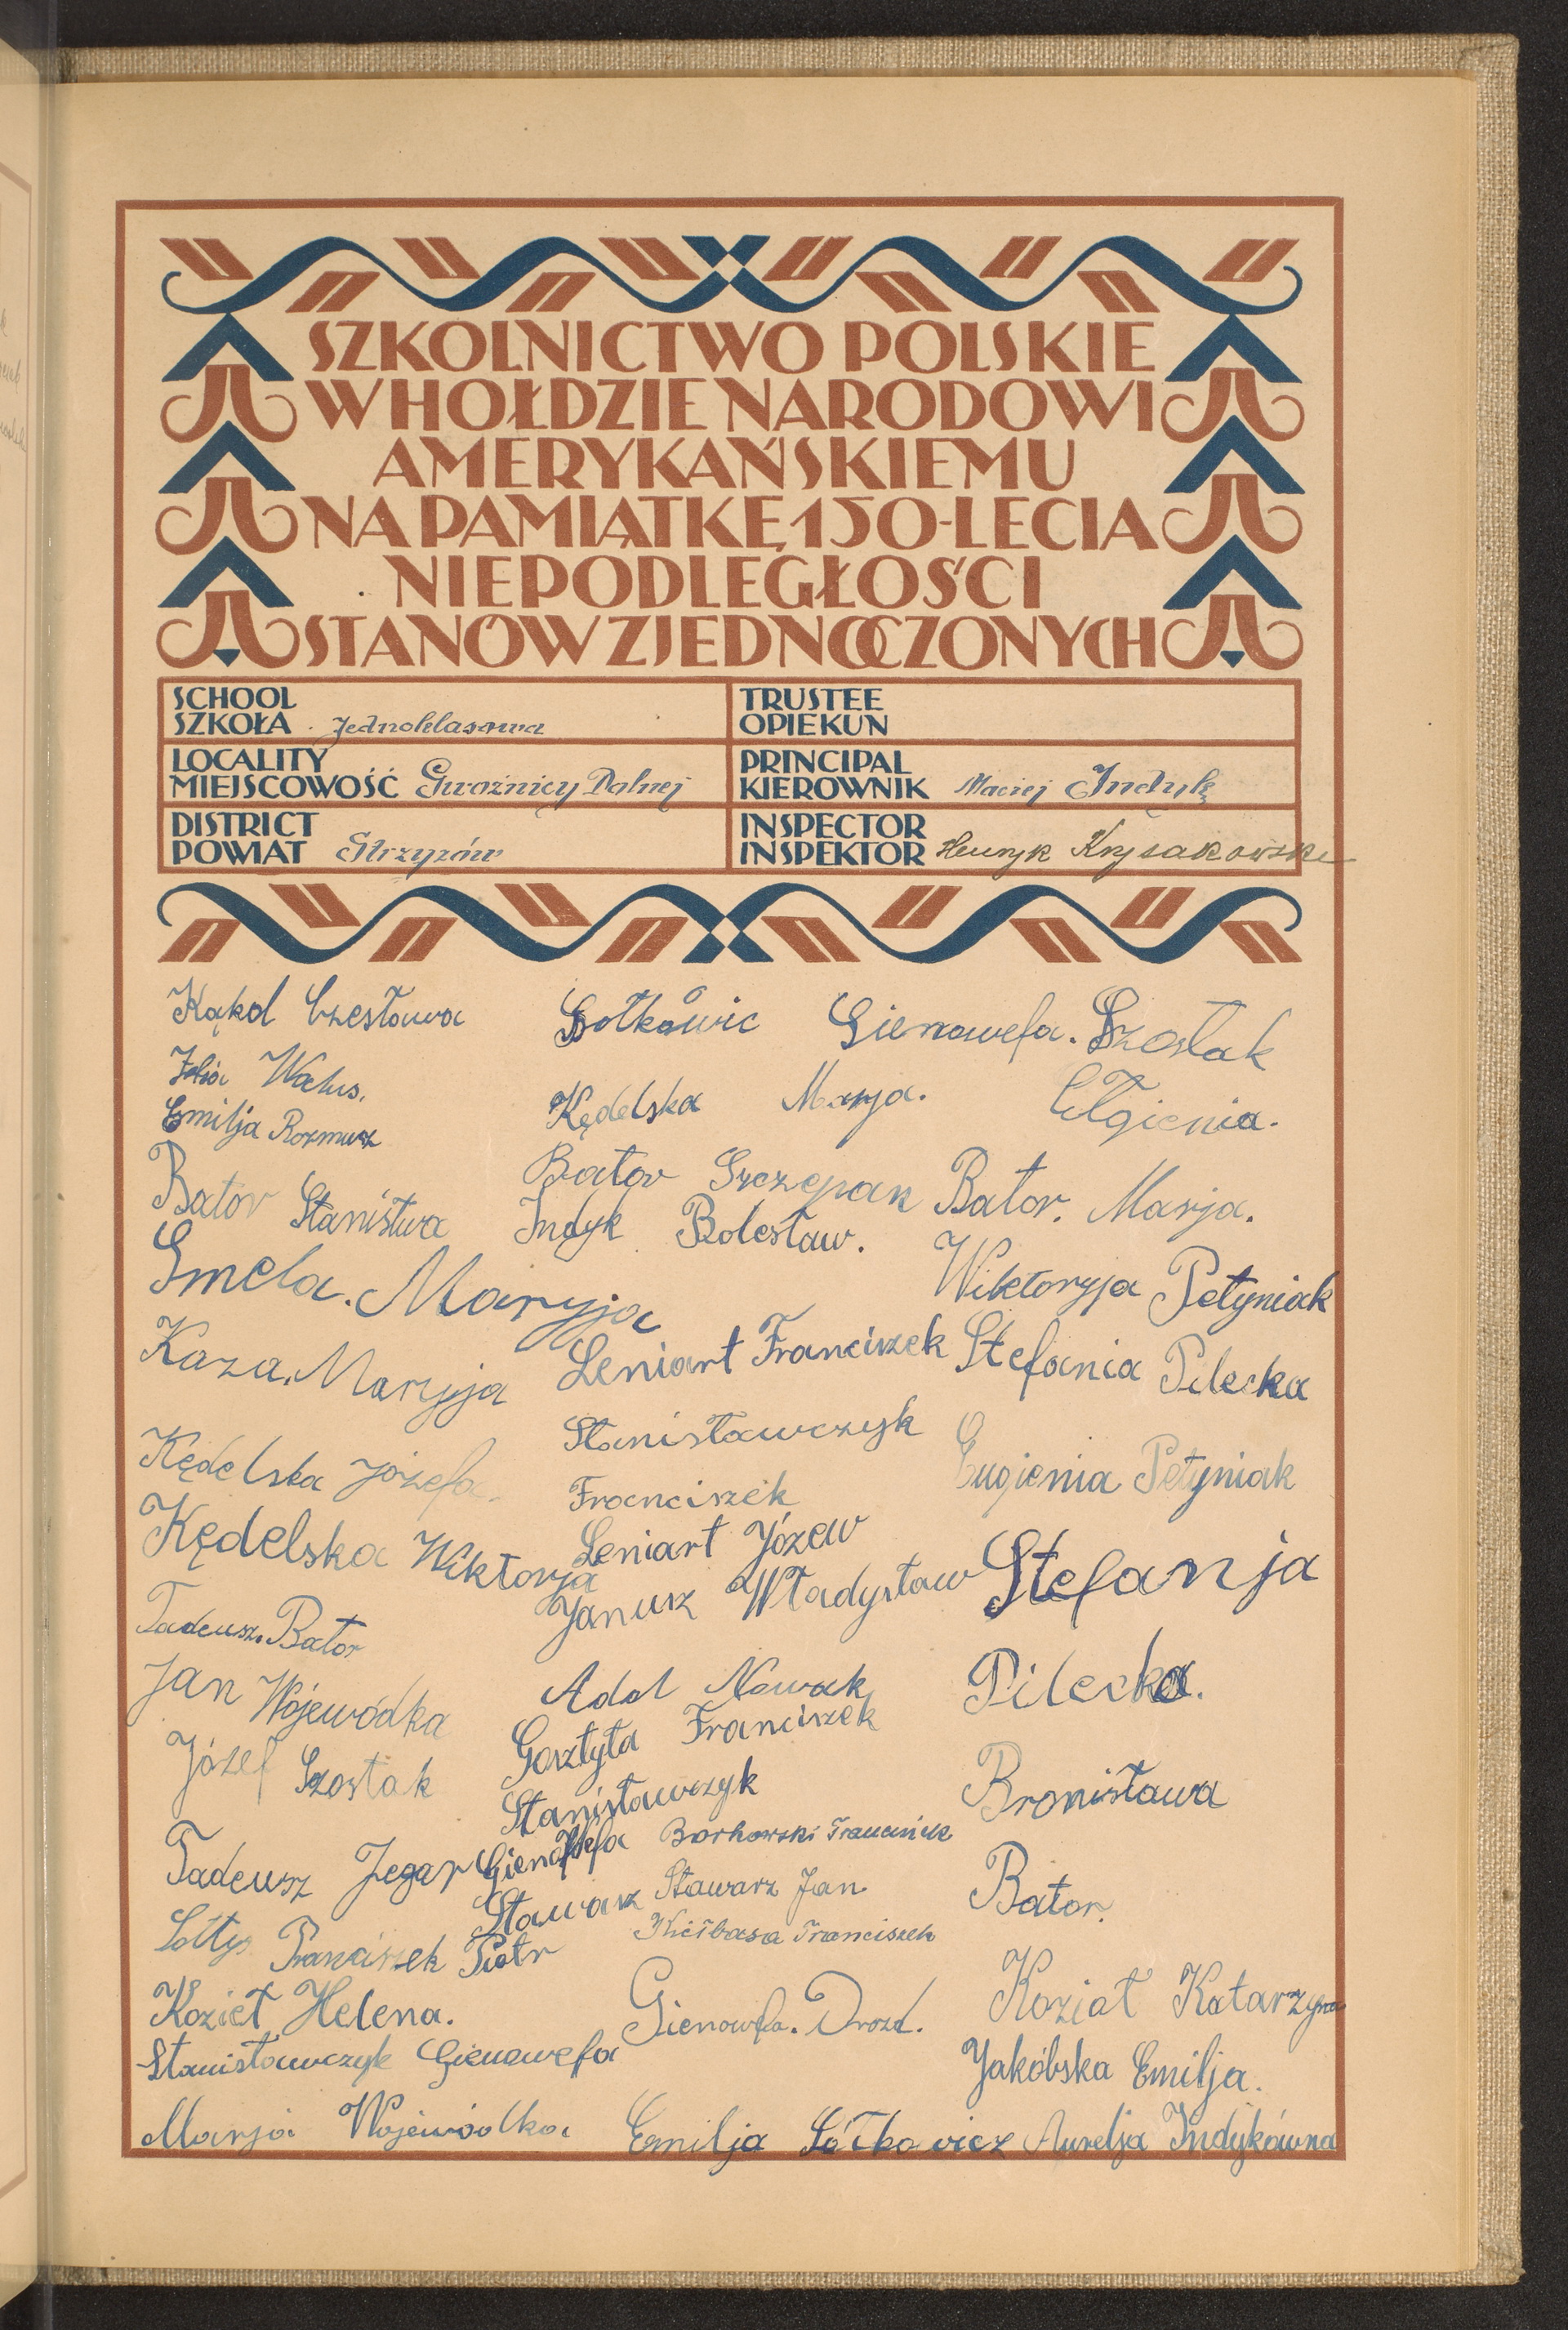 SZKOLNICTWO POLSKIE
W HOŁDZIE NARODOWI
AMERYKAŃSKIEMU
NA PAMIĄTKĘ 150-LECIA
NIEPODLEGŁOŚCI
STANÓW ZJEDNOCZONYCH
SCHOOL
SZKOŁA Jednoklasowa
TRUSTEE
OPIEKUN
LOCALITY
MIEJSCOWOŚĆ Gwoźnicy Dolnej
PRINCIPAL
KIEROWNIK Maciej Indyk
DISTRICT
POWIAT Strzyżów
INSPECTOR
INSPEKTOR Henryk Krysakowski
Kąkol Czesława
Zofia Walus.
Emilja Rozmusz
Bator Stanistwa
Smela. Maryja
Kaza. Maryja
Kędelska Józefa.
Kędelska Wiktorja
Tadeusz. Bator
Jan Wojewódka
Józef Szostak
Tadeusz Jegar
Sołtys Franciszek
Kozieł Helena.
Stanisławczyk Gienowefa
Marja Wojewódka
Sołkowic Gienowefa.
Kędelska Marja.
Bator Szczepan
Indyk Bolesław.
Leniart Franciszek
Stanisławczyk
Franciszek
Leniart Józew
Janusz Władysław
Adol Nowak
Gosztyła Franciszek
Stanisławczyk
Gienowefa
Borkowski Franciszek
Stawarz
Piotr
Stawarz Jan
Kiełbasa Franciszek
Gienowefa. Drozd.
Emilja Sółkowicz
Szostak
Elgienia.
Bator. Marja.
Wiktoryja Petyniak
Stefania Pilecka
Eugienia Petyniak
Stefanja
Pilecka.
Bronisława
Bator.
Kozioł Katarzyna
Jakóbska Emilja.
Aurelja Indykówna